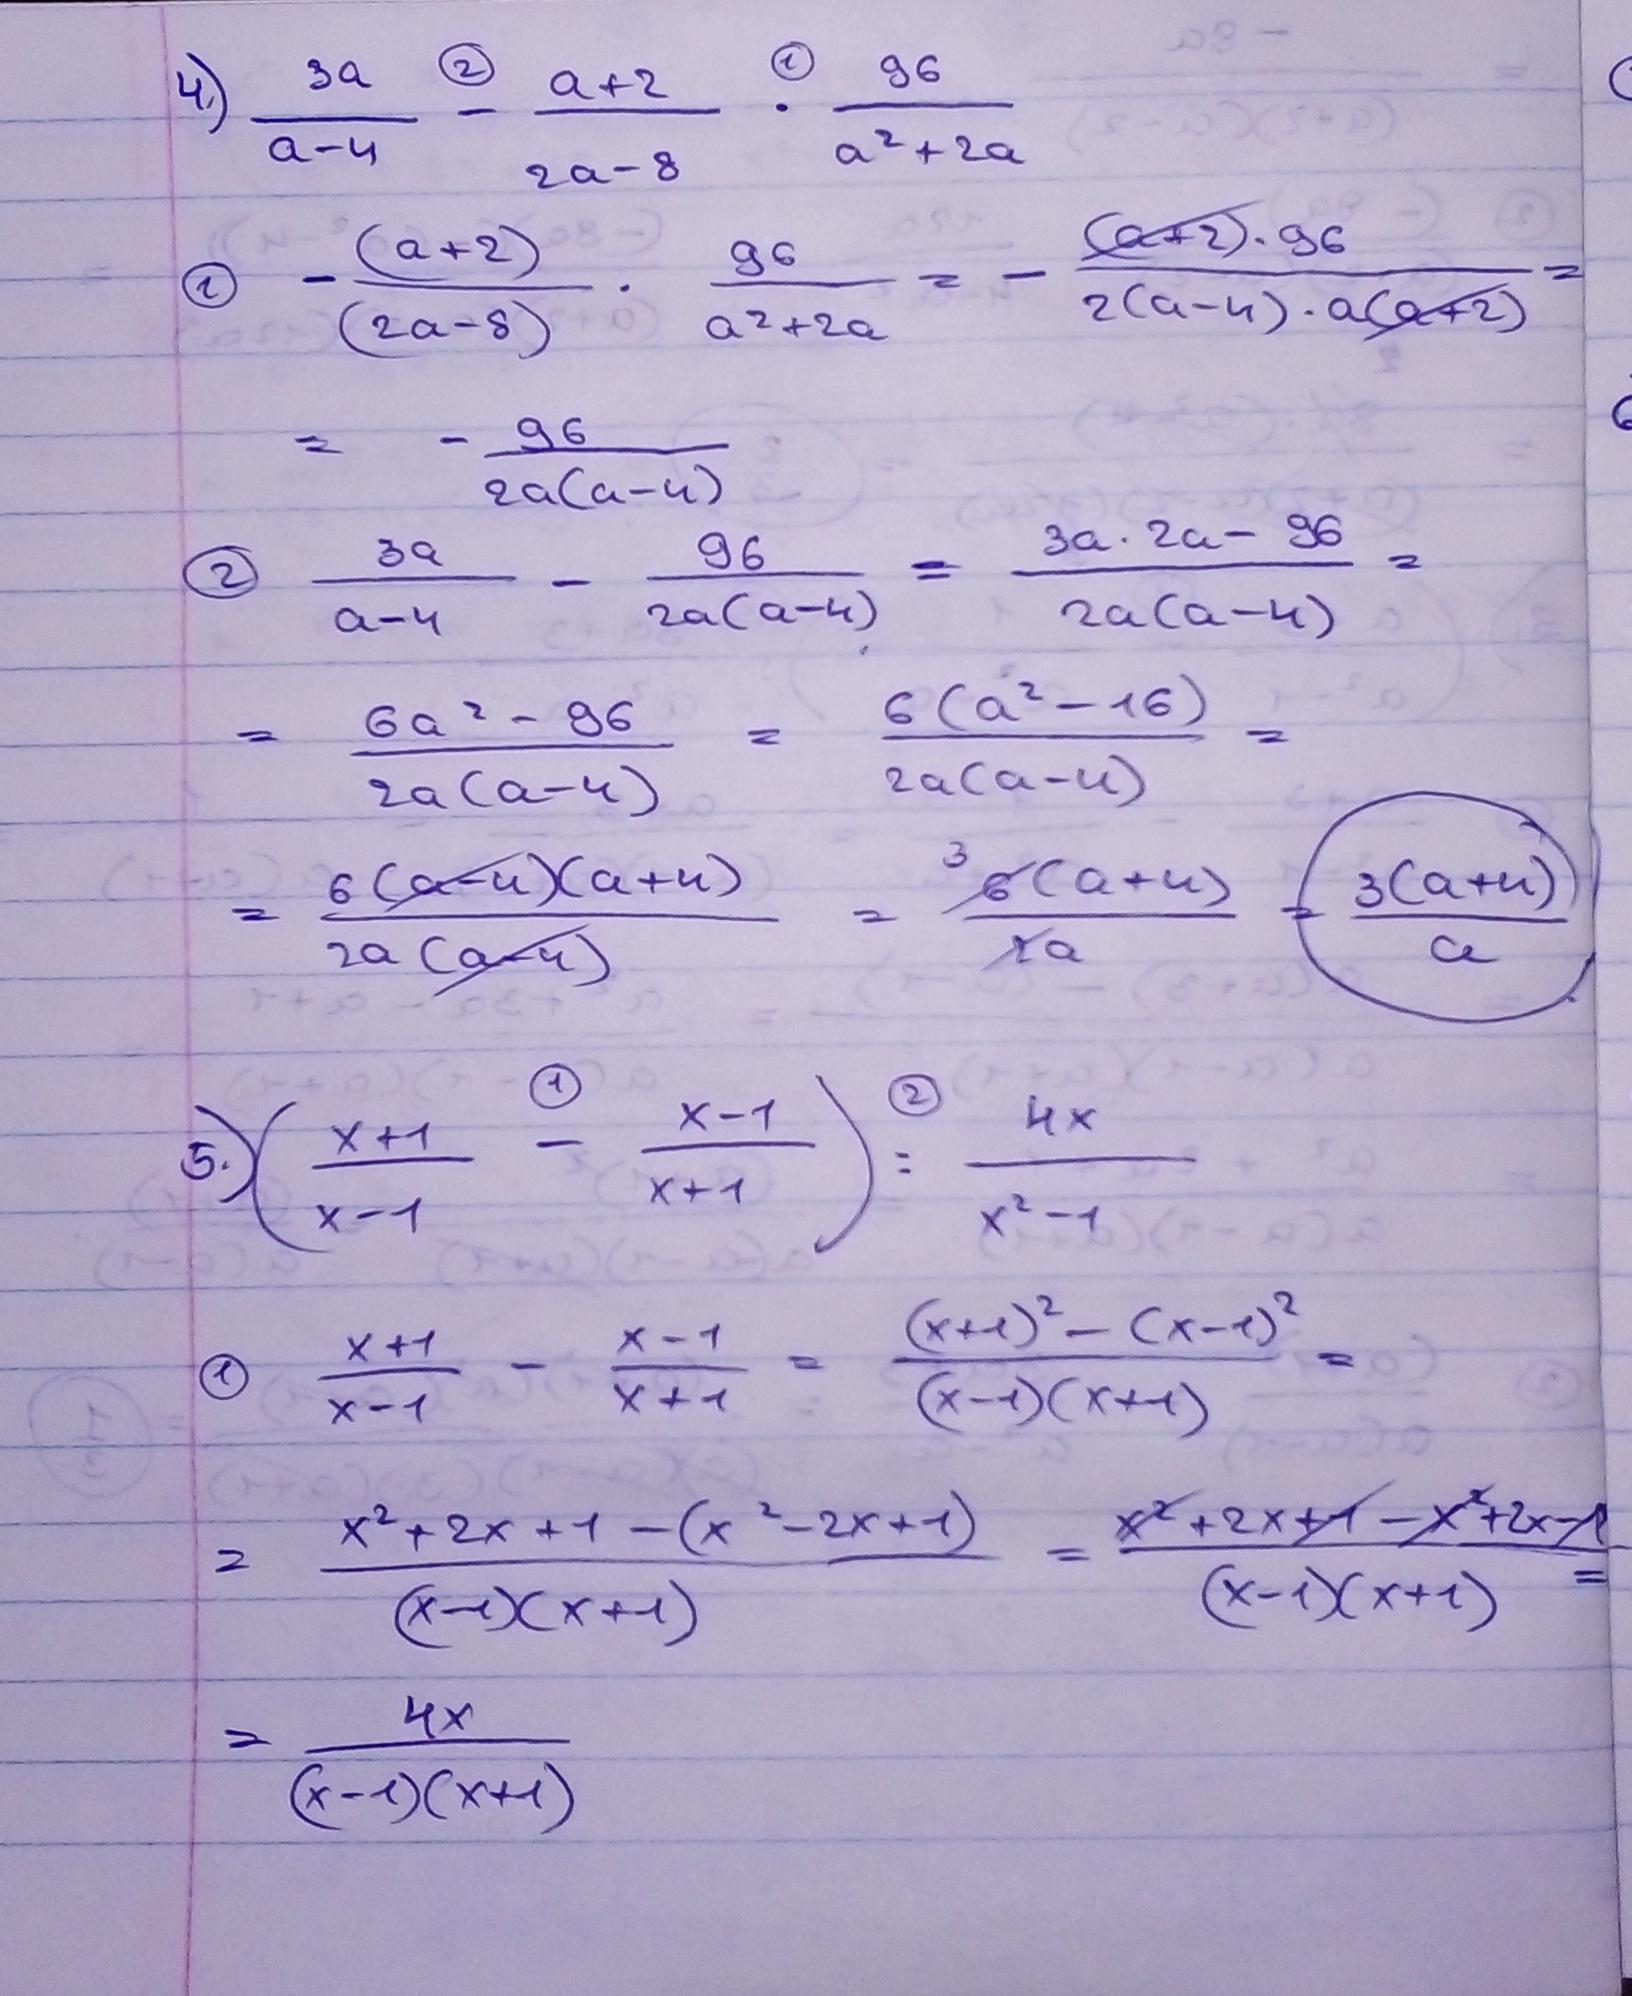 4.) 3a/(a-4) ② - (a+2)/(2a-8) ① · 96/(a²+2a)
① - (a+2)/(2a-8) · 96/(a²+2a) = - (a+2)·96/(2(a-4)·a(a+2)) =
= - 96/(2a(a-4))
② 3a/(a-4) - 96/(2a(a-4)) = (3a·2a-96)/(2a(a-4)) =
= (6a²-96)/(2a(a-4)) = 6(a²-16)/(2a(a-4)) =
= 6(a-4)(a+4)/(2a(a-4)) = ³6(a+4)/(2a) = 3(a+4)/a
5.) ((x+1)/(x-1) ① - (x-1)/(x+1)) ② : 4x/(x²-1)
① (x+1)/(x-1) - (x-1)/(x+1) = ((x+1)²-(x-1)²)/((x-1)(x+1)) =
= (x²+2x+1-(x²-2x+1))/((x-1)(x+1)) = (x²+2x+1-x²+2x-1)/((x-1)(x+1)) =
= 4x/((x-1)(x+1))